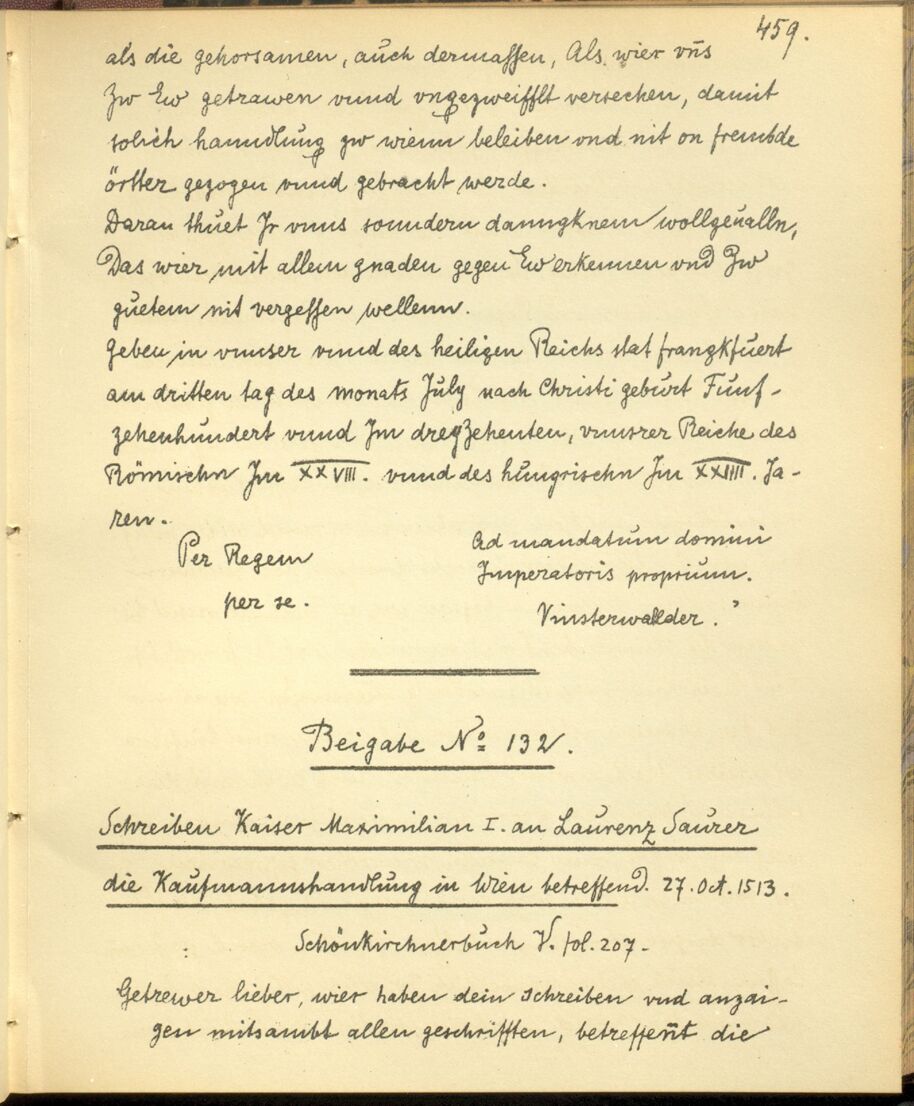 459.
als die gehorsamen, auch dermassen, Als wier vnß
Zw Ew getrawen vnnd vngezweifflt versechen, damit
solich hanndlung zw wienn beleiben vnd nit on frembde
örtter gezogen vnnd gebracht werde.
Daran thuet Jr vnns sonndern danngknem wollgeualln,
Das wier mit allem gnaden gegen Ew erkennen vnd Zw
guetem nit vergessen wellenn.
Geben in vnnser vnnd des heiligen Reichs stat frangkfuert
am dritten tag des monats July nach Christi geburt Funf-
zehenhundert vnnd Jm dreyzehenten, vnnsrer Reiche des
Römischn Jm XXVIII. vnnd des hungrischn Jm XXIIII. Ja-
ren.
Per Regem
per se.
Ad mandatum domini
Imperatoris proprium.
Vinsterwallder."
Beigabe Nº 132.
Schreiben Kaiser Maximilian I. an Laurenz Saurer
die Kaufmannshandlung in Wien betreffend. 27. Oct. 1513.
Schönkirchnerbuch V. fol. 207.
Getrewer lieber, wier haben dein schreiben vnd anzai-
gen mitsambt allen geschrifften, betreffent die